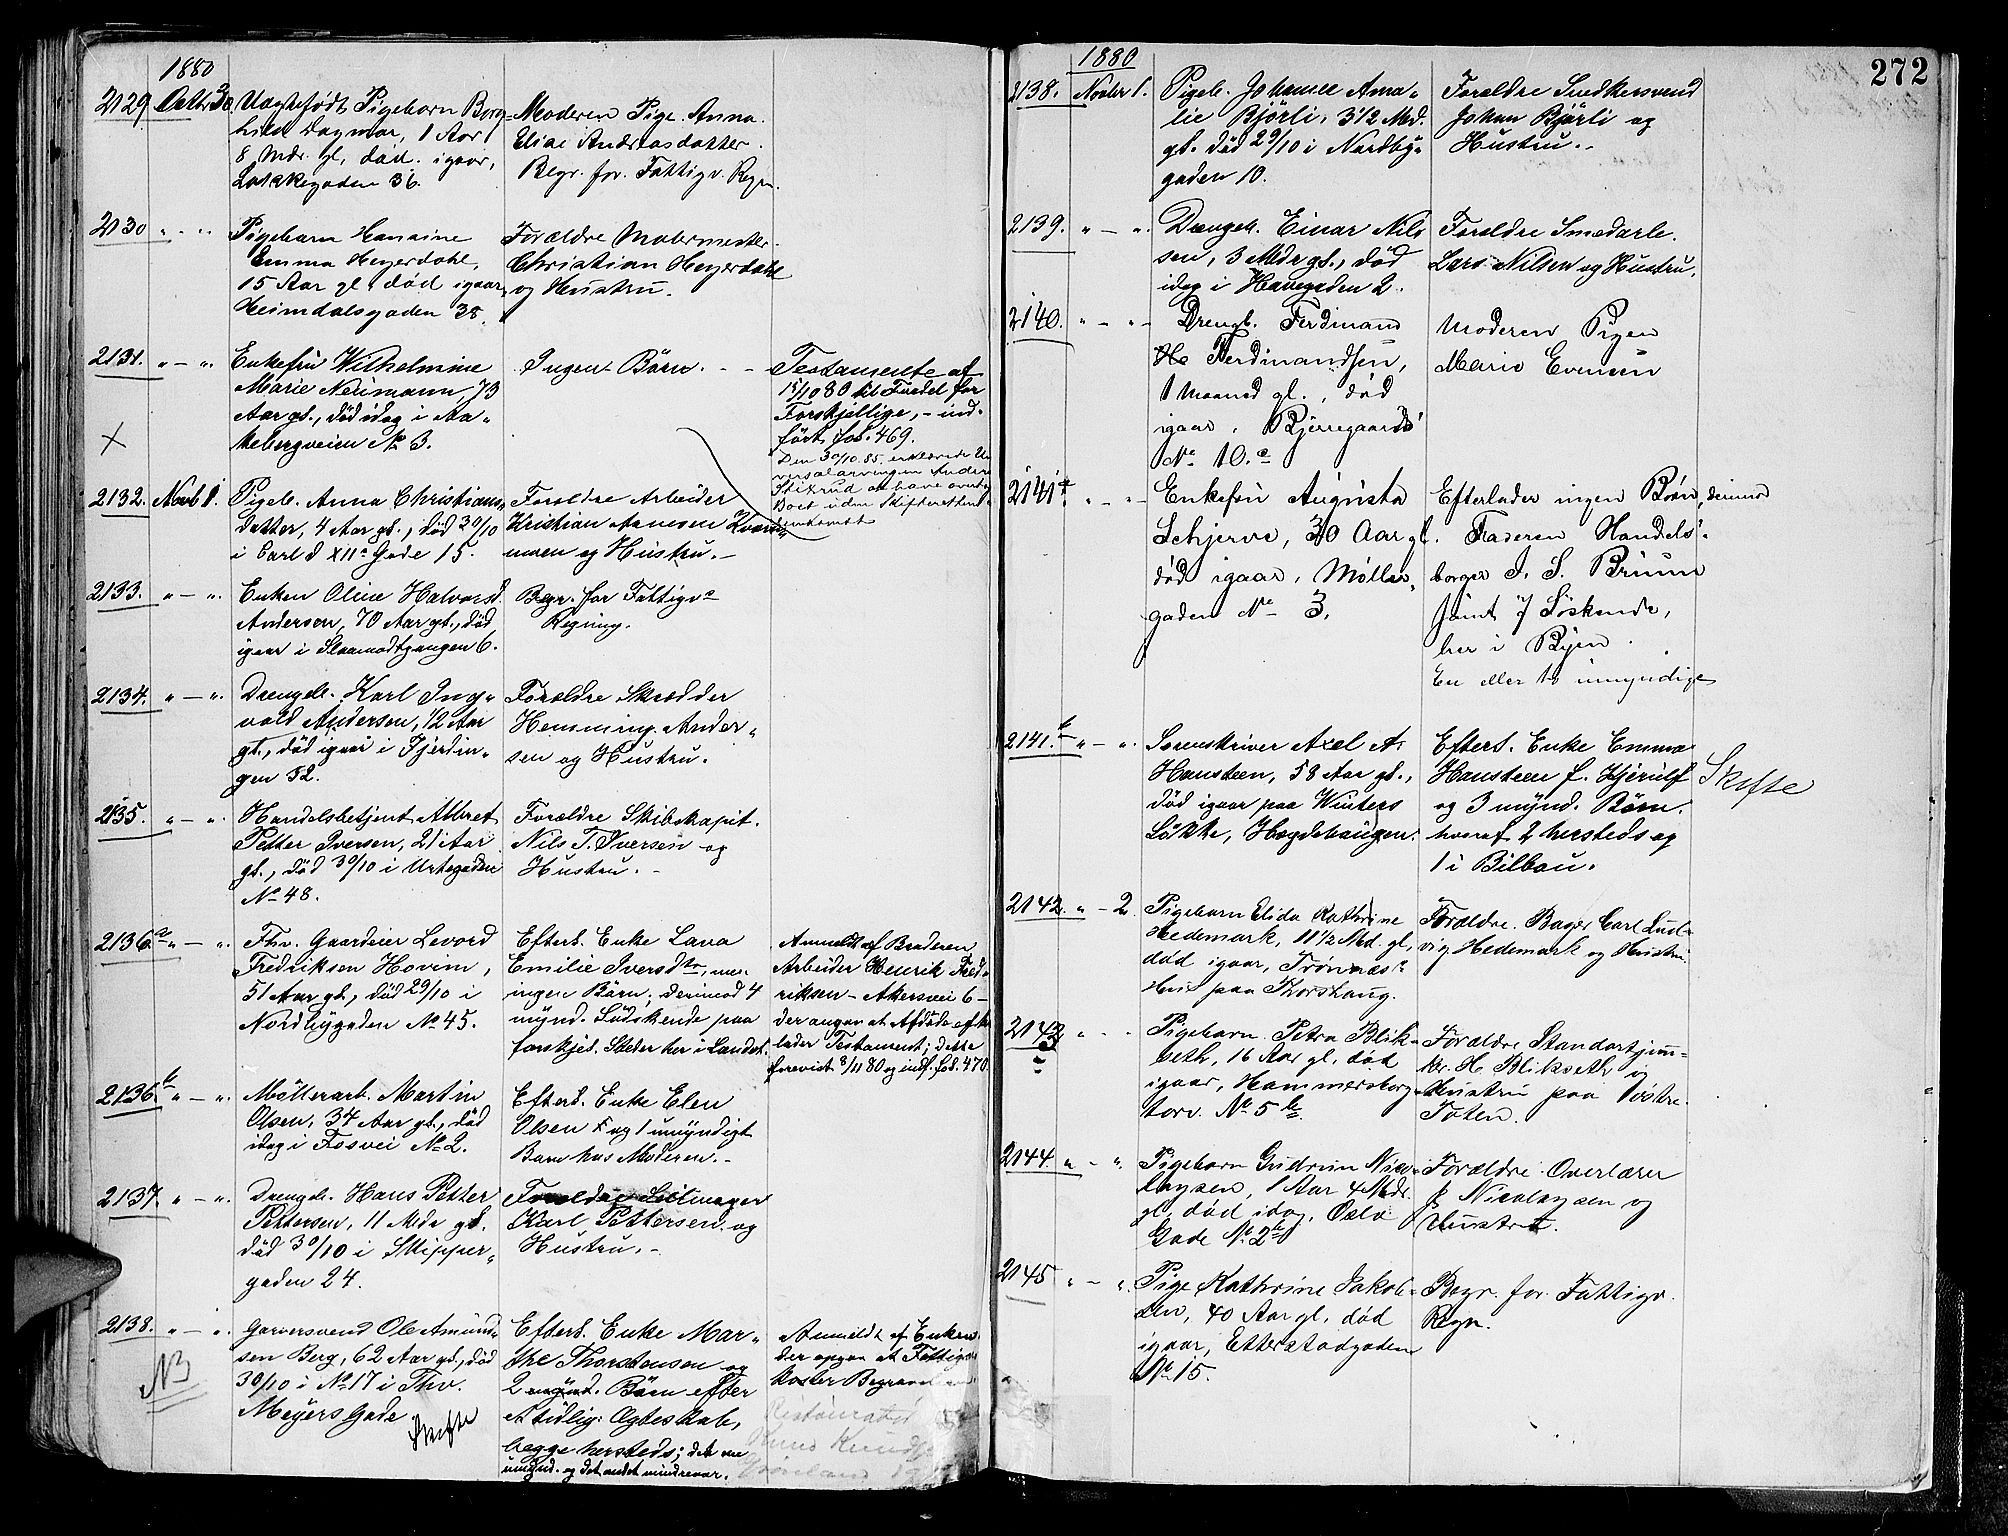 1880
2129. Octbr 30. Uægtefødt Pigebarn Borg-
hild Dagmar, 1 Aar
8 Mdr. gl, død igaar,
Lakkegaden 36.
Moderen Pige Anna
Elise Andreasdatter.
Begr. for Fattigv. Regn.
2130 " - " Pigebarn Hansine
Emma Heyerdahl,
15 Aar gl, død igaar,
Heimdalsgaden 38.
Forældre Malermester
Christian Heyerdahl
og Hustru.
2131. " - " Enkefru Wilhelmine
Marie Neumann, 73
Aar gl., død idag i Aa-
kebergveien No 3.
Ingen Børn. - -
Testamente af
15/10 80 til Fordel for
Forskjellige, - ind-
ført fol. 469.
Den 30/10 85 erklærede Uni
versalarvingen Anders
Stixrud at have overt.
Boet uden Skifterettens
2132. Novb 1. Pigeb. Anna Christians-
datter, 4 Aar gl., død 30/10
i Carl d XIIs Gade 15.
Forældre Arbeider
Kristian Arnesen Kværn-
moen og Hustru. -
2133. " - " Enken Oline Halvorsd.
Andersen, 70 Aar gl., død
igaar i Slaamodtgangen 6.
Begr. for Fattigv.
Regning.
2134. " - " Drengeb. Karl Ing-
vald Andersen, 1/2 Aar
gl., død igaar i Fjerdin-
gen 52.
Forældre Skrædder
Hemming Ander-
sen og Hustru.
2135. " - " Handelsbetjent Albret
Petter Iversen, 21 Aar
gl., død 30/10 i Urtegaden
No 48.
Forældre Skibskapit.
Nils T. Iversen og
Hustru. -
2136a " - " Fhv. Gaardeier Levord
Fredriksen Hovim,
51 Aar gl., død 29/10 i
Nordbygaden No 45.
Efterl. Enke Lava
Emilie Iversdtr, men
ingen Børn; derimod 4
mynd. Södskende paa
forskjel. Steder her i Landet.
Anmeldt af Broderen
Arbeider Henrik Fred-
riksen - Akersvei 6 -
der angav at Afdøde efter
lader Testament; dette
forevist 3/11 80 og indf. fol. 470.
2136b " - " Møllerarb. Martin
Olsen, 34 Aar gl., død
idag i Fosvei No 2.
Efterl. Enke Elen
Olsen F og 1 umyndigt
Barn hos Moderen. -
2137. " - " Drengeb. Hans Petter
Pettersen, 11 Mdr gl.
død 30/10 i Skipper-
gaden 24.
Forældre Seilmager
Karl Pettersen og
Hustru. -
2138. " - " Garversvend Ole Amund-
sen Berg, 62 Aar gl., død
30/10 i No 17 i Thv.
Meyers Gade.
NB
Skifte
Efterl. Enke Mar-
the Thorstensen og
2 mynd. Børn efter
et tidlig. Ægteskab,
begge hersteds; det ene
umynd. og det andet mindreaar.
Anmeldt af Enken
der opgav at Fattigv.
koster Begravel
Knud Knuds
Grønland
272
1880
2138. Novber 1. Pigeb. Johanne Ama-
lie Bjørli, 3 1/2 Md.
gl. død 29/10 i Nordby-
gaden 10.
Forældre Snedkersvend
Johan Bjørli og
Hustru. -
2139. " - " Drengeb. Einar Nils
sen, 3 Mdr gl., død
idag i Havegaden 2.
Forældre Smedarb.
Lars Nilsen og Hustru.
2140. " - " Drengb. Ferdinand
Ferdinandsen,
1 Maaned gl., død
igaar, Bjerregaards
No 10.c
Moderen Pigen
Marie Evensen
2141a " - " Enkefru Augusta
Schjerve, 30 Aar gl.
død igaar, Møller-
gaden No 3.
Efterlader ingen Børn, derimod
Faderen Handels-
borger J. S. Bruun
samt 7 Søskende,
her i Byen.
En eller to umyndige
2141.b " - " Sorenskriver Axel A.
Hansteen, 58 Aar gl.,
død igaar paa Winters
Løkke, Hægdehaugen.
Efterl. Enke Emma
Hansteen f. Kjerulf
og 3 mynd. Børn.
hvoraf 2 hersteds og
1 i Bilbau.
Skifte
2142. " - 2. Pigebarn Elida Kathrine
Hedemark, 11 1/2 Md. gl,
død igaar, Trønnæs'
Hus paa Thorshaug.
Forældre Bager Carl Lud-
vig Hedemark og Hustru
2143 " - " Pigebarn Petra Blik-
seth, 16 Aar gl, død
igaar, Hammersborg-
torv. No 5b
Forældre Standartjun-
ker H Blikseth og
Hustru paa Vøstre
Toten.
2144. " - " Pigebarn Gudrun Nico-
laysen, 1 Aar 4 Mdr.
gl, død idag, Oslo
Gade No 2b
Forældre Overlærer
Nicolaysen og
Hustru.
2145 " - " Pige Kathrine Jakob-
sen, 40 Aar gl, død
igaar, Etterstadgaden
No 15.
Begr. for Fattigv.
Regn.